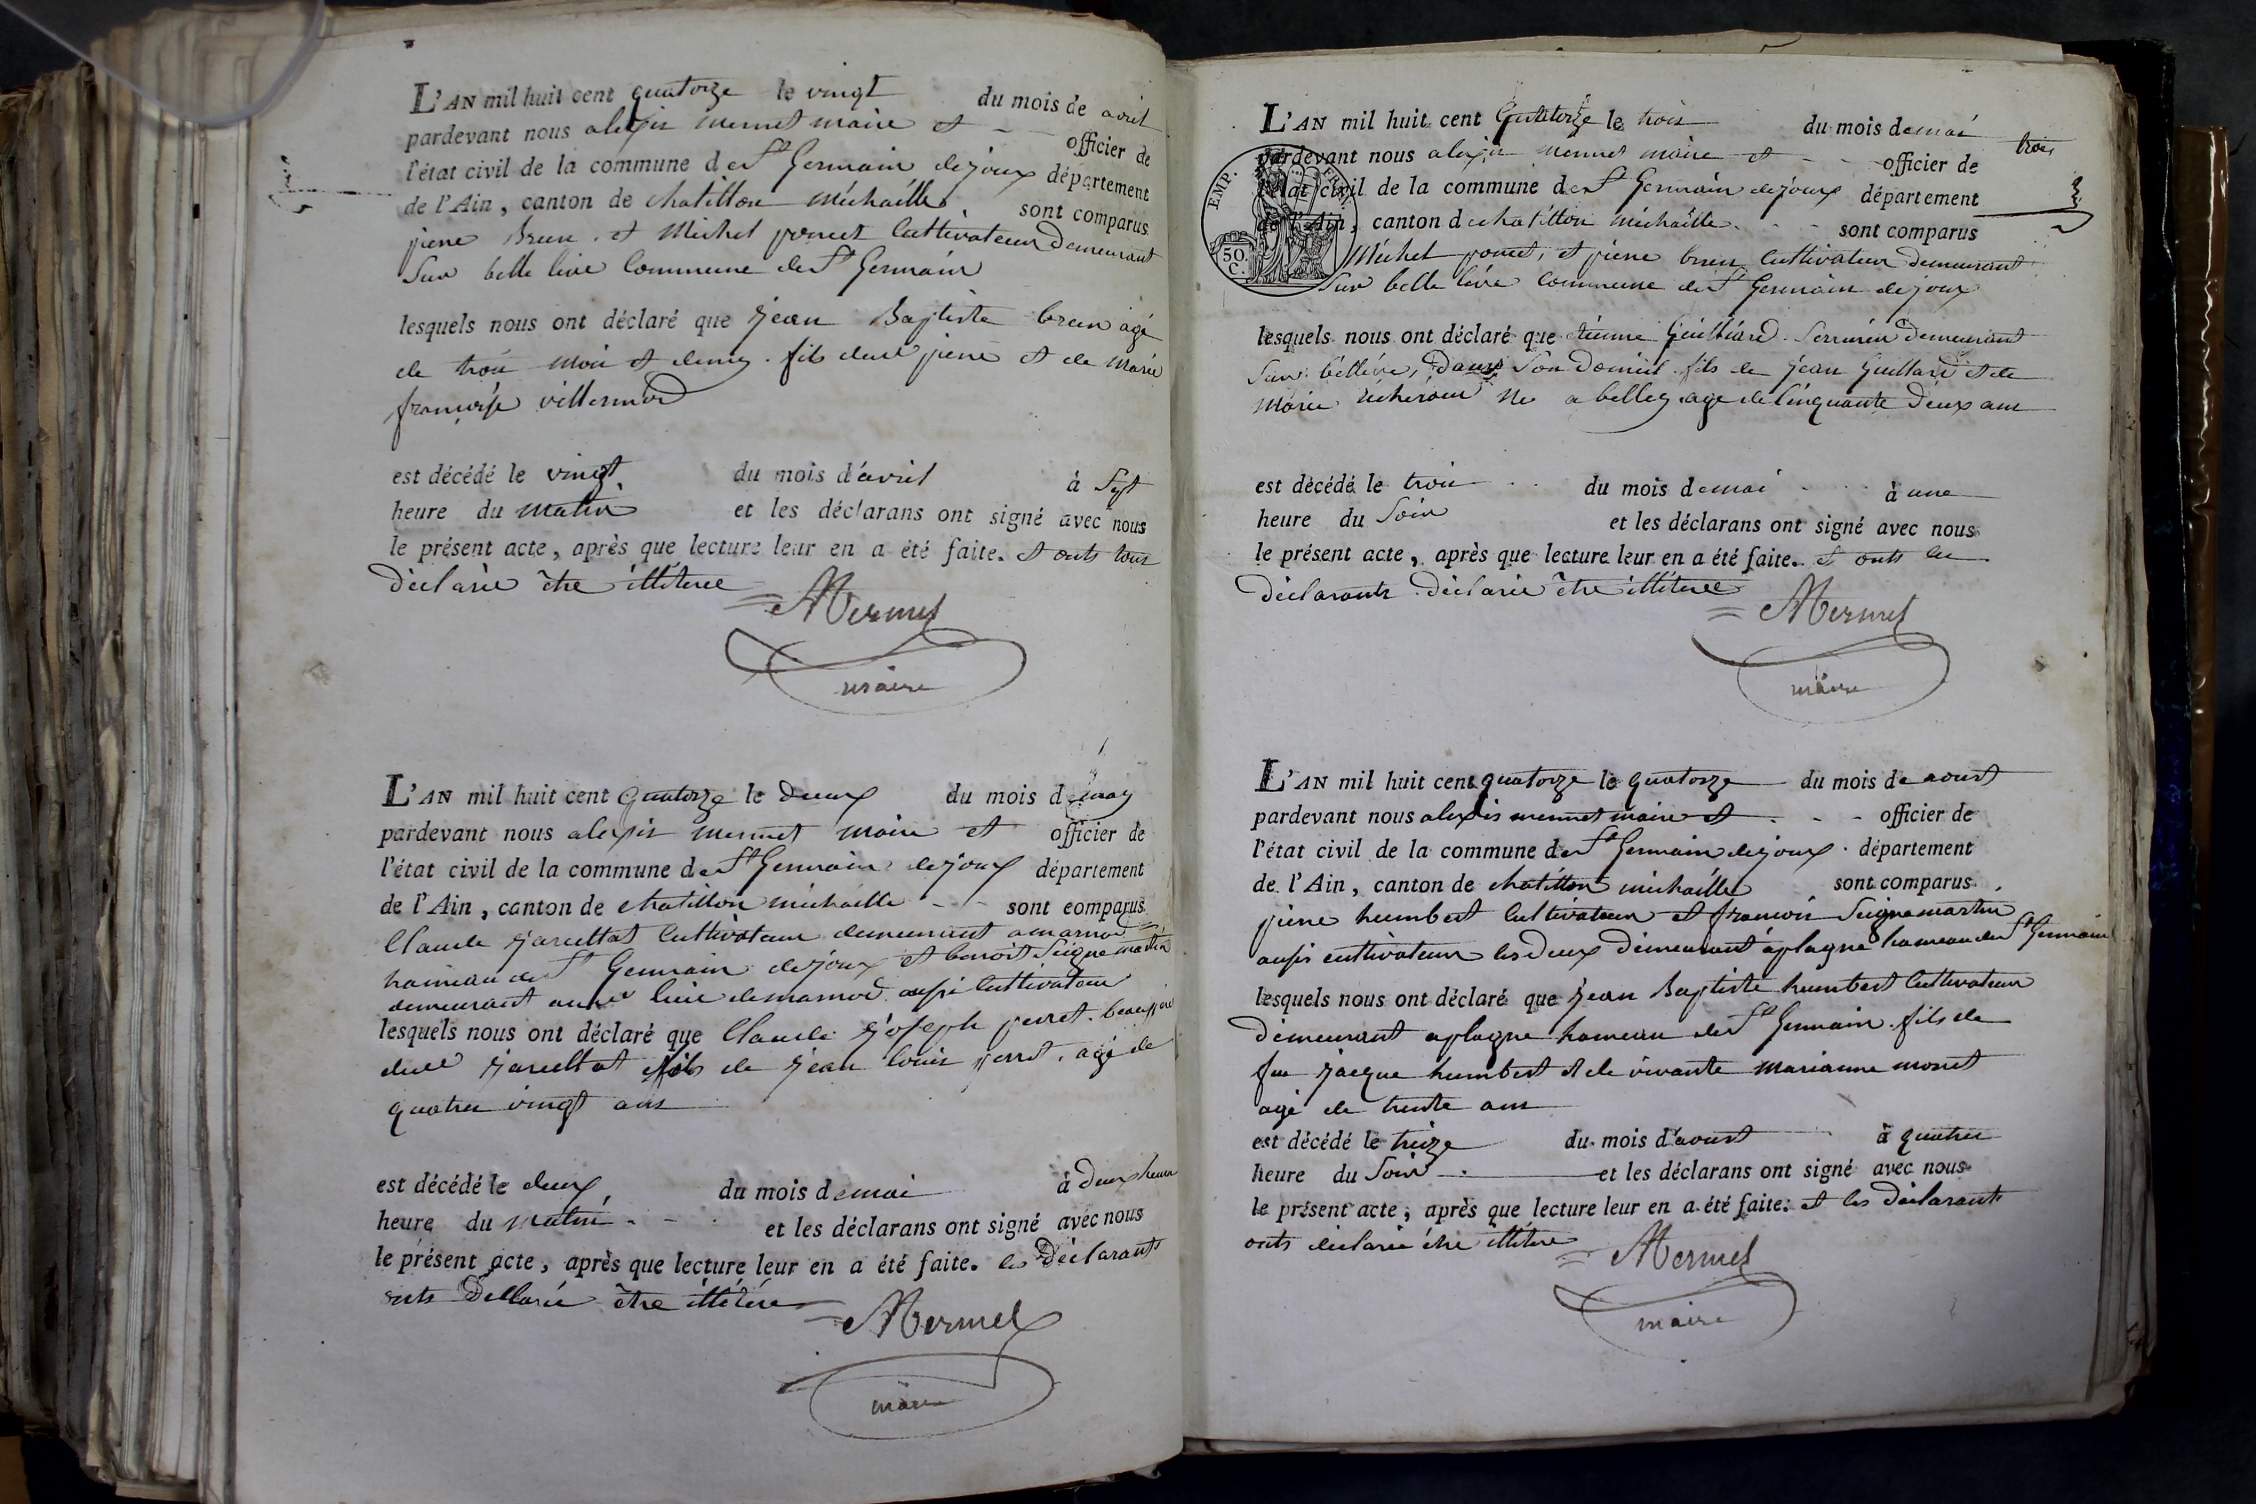 L'AN mil huit cent quatorze le vingt du mois de avril
pardevant nous alexis mermet maire et - - officier de
l'état civil de la commune de St Germain dejoux département
de l'Ain, canton de chatillon michaille sont comparus
piere Brun . et Michel poncet Cultivateur Demeurant
Sur belle live Commune de St Germain
lesquels nous ont déclaré que jean Baptiste brun agé
de trois mois et demy . fils dud piere et de Marie
françoise villermod
est décédé le vingt du mois d'avril à sept
heure du matin et les déclarans ont signé avec nous
le présent acte, après que lecture leur en a été faite. et onts tous
déclarée être illiteree
AMermet
maire
L'AN mil huit cent quatorze le deux du mois de may
pardevant nous alexis mermet maire et officier de
l'état civil de la commune de St Germain dejoux département
de l'Ain, canton de chatillon michaille - - sont comparus
Claude jacuttat Cultivateur demeurant a marnod
hameau de St Germain dejoux et benoit Seignemartin
demeurant aud lieu demarnod aussi Cultivateur
lesquels nous ont déclaré que Claude joseph perret . beaupere
dud jacuttat fils de jean louis perret . agé de
quatre vingt ans
est décédé le deux du mois de mai à deux heure
heure du matin . - . et les déclarans ont signé avec nous
le présent acte, après que lecture leur en a été faite. les Déclarants
onts Dellarée être illitéré
AMermet
maire
L'AN mil huit cent Quatorze le trois du mois de mai
trois
pardevant nous alexis mermet maire et - - officier de
l'état civil de la commune de St Germain dejoux département
de l'Ain, canton de chatillon michaille . - - sont comparus
EMP. FR.
50. C.
Michel poncet, et piere brun Cultivateur demeurant
Sur belle léve Commune de St Germain dejoux
lesquels nous ont déclaré que étienne Guillard . Serrurier demeurant
Sur belléve, dans Son Domicil . fils de jean Guillard et de
Marie Ne a belley . age de Cinquante Deux ans
est décédé le trois du mois de mai à une
heure du Soir et les déclarans ont signé avec nous
le présent acte, après que lecture leur en a été faite. et onts les
déclarants . déclarée être illiteree
AMermet
maire
L'AN mil huit cent quatorze le quatorze du mois de aoust
pardevant nous alexis mermet maire et . - - officier de
l'état civil de la commune de St Germain dejoux . département
de l'Ain, canton de chatillon michaille sont comparus
piere humbert Cultivateur et francois Seignemartin
aussi cultivateur les deux demeurant a plagne hameau de St Germain
lesquels nous ont déclaré que jean Baptiste humbert Cultivateur
demeurant a plagne hameau de St Germain . fils de
feu jacque humbert et de vivante marianne monet
agé de trente ans
est décédé le treize du mois d'aoust à quatre
heure du Soir . et les déclarans ont signé avec nous
le présent acte, après que lecture leur en a été faite. et les Déclarants
onts declarée être illitere
AMermet
maire